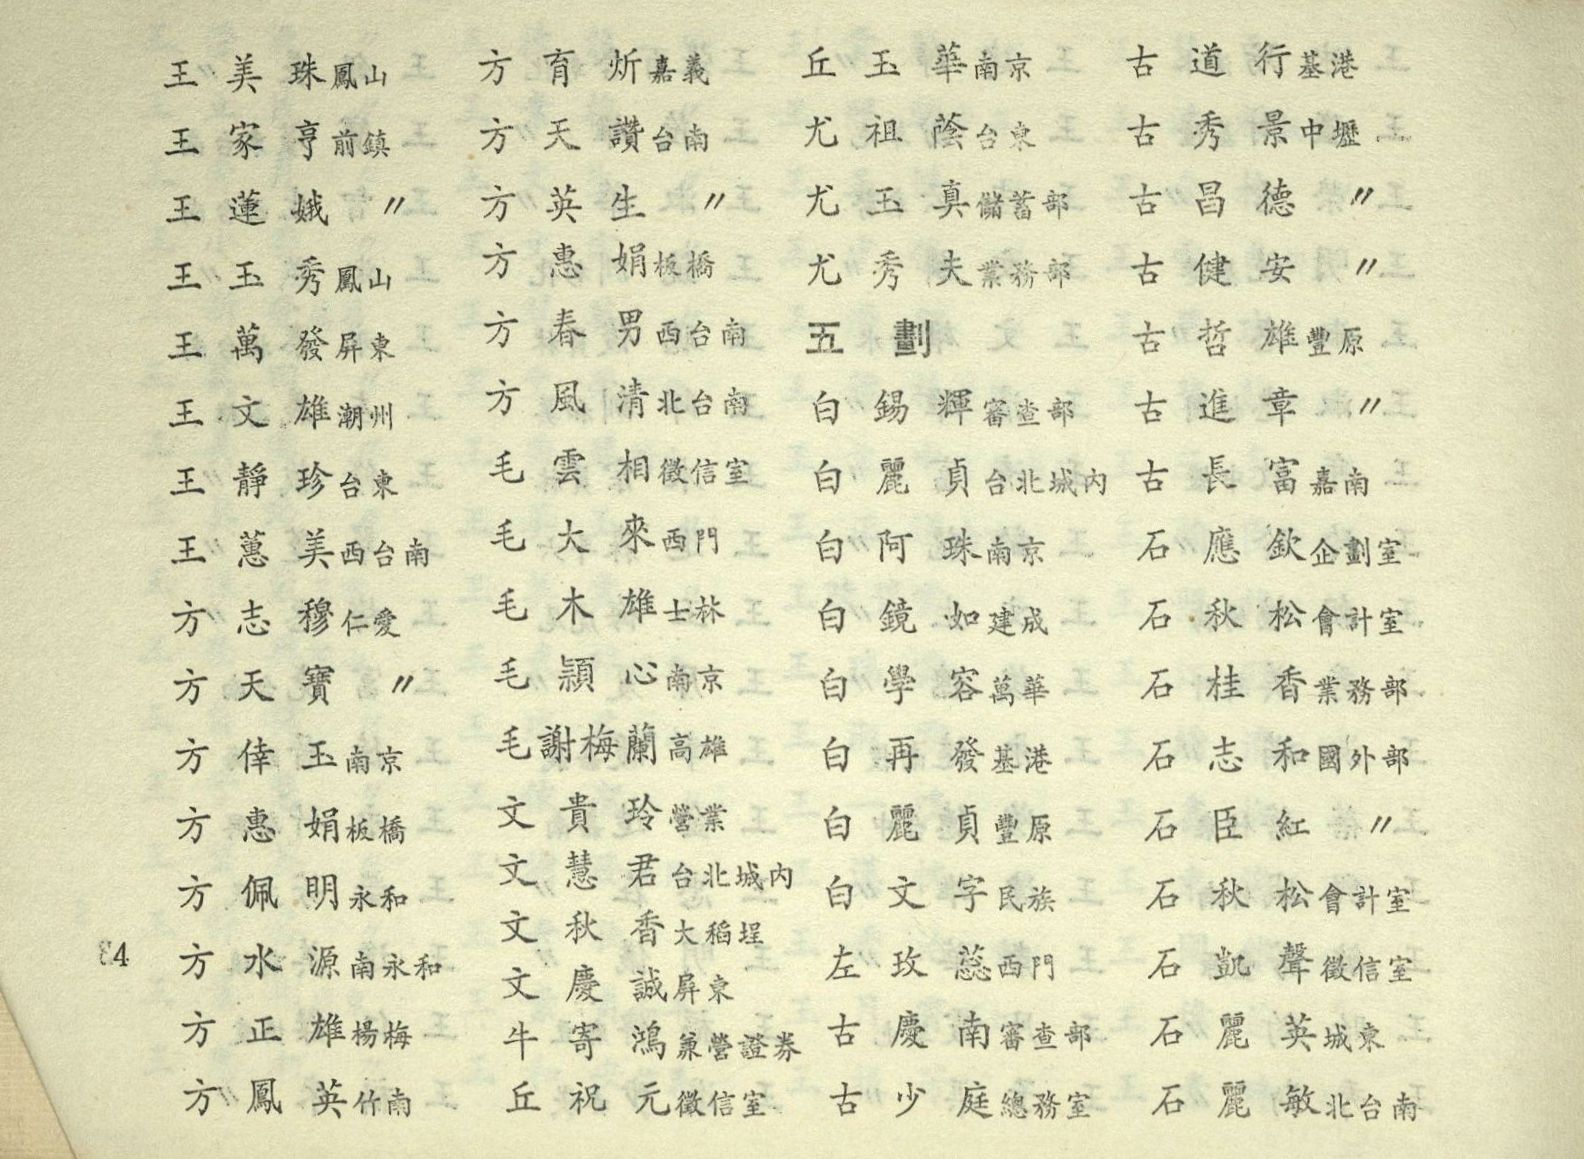 王美珠鳳山
王家亨前鎮
王蓮娥〃
王玉秀鳳山
王萬發屏東
王文雄潮州
王靜珍台東
王蕙美西台南
方志穆仁愛
方天寶〃
方倖玉南京
方惠娟板橋
方佩明永和
方水源南永和
方正雄楊梅
方鳳英竹南
方育炘嘉義
方天讚台南
方英生〃
方惠娟板橋
方春男西台南
方風清北台南
毛雲相徵信室
毛大來西門
毛木雄士林
毛頴心南京
毛謝梅蘭高雄
文貴玲營業
文慧君台北城內
文秋香大稻埕
文慶誠屏東
牛寄鴻兼營證券
丘祝元徵信室
丘玉華南京
尤祖蔭台東
尤玉真儲蓄部
尤秀夫業務部
五劃
白錫輝審查部
白麗貞台北城內
白阿珠南京
白鏡如建成
白學容萬華
白再發基港
白麗貞豐原
白文字民族
左玫蕊西門
古慶南審查部
古少庭總務室
古道行基港
古秀景中壢
古昌德〃
古健安〃
古哲雄豐原
古進章〃
古長富嘉南
石應欽企劃室
石秋松會計室
石桂香業務部
石志和國外部
石臣紅〃
石秋松會計室
石凱聲徵信室
石麗英城東
石麗敏北台南
84